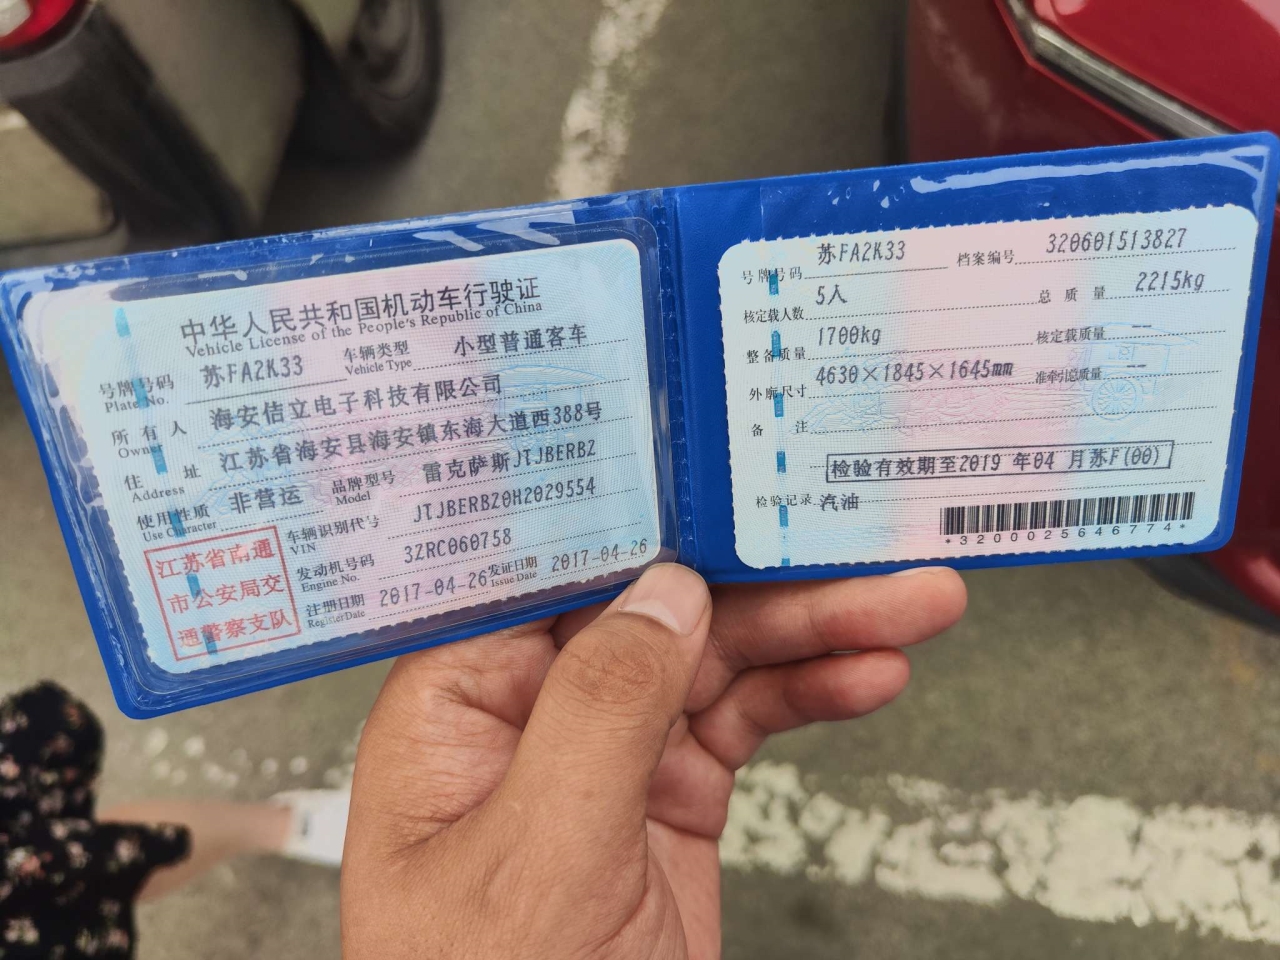 中华人民共和国机动车行驶证
Vehicle License of the People's Republic of China
号牌号码 苏FA2K33 车辆类型 小型普通客车
Plate No. Vehicle Type
所有人 海安佶立电子科技有限公司
Owner
住址 江苏省海安县海安镇东海大道西388号
Address
使用性质 非营运 品牌型号 雷克萨斯JTJBERBZ
Use Character Model
江苏省南通
市公安局交
通警察支队
车辆识别代号 JTJBERBZ0H2029554
VIN
发动机号码 3ZRC060758
Engine No.
注册日期 2017-04-26 发证日期 2017-04-26
Register Date Issue Date
号牌号码 苏FA2K33 档案编号 320601513827
核定载人数 5人 总质量 2215kg
整备质量 1700kg 核定载质量 --
外廓尺寸 4630×1845×1645mm 准牵引总质量 --
备注
检验有效期至2019年04月苏F(00)
检验记录 汽油
*3200025646774*